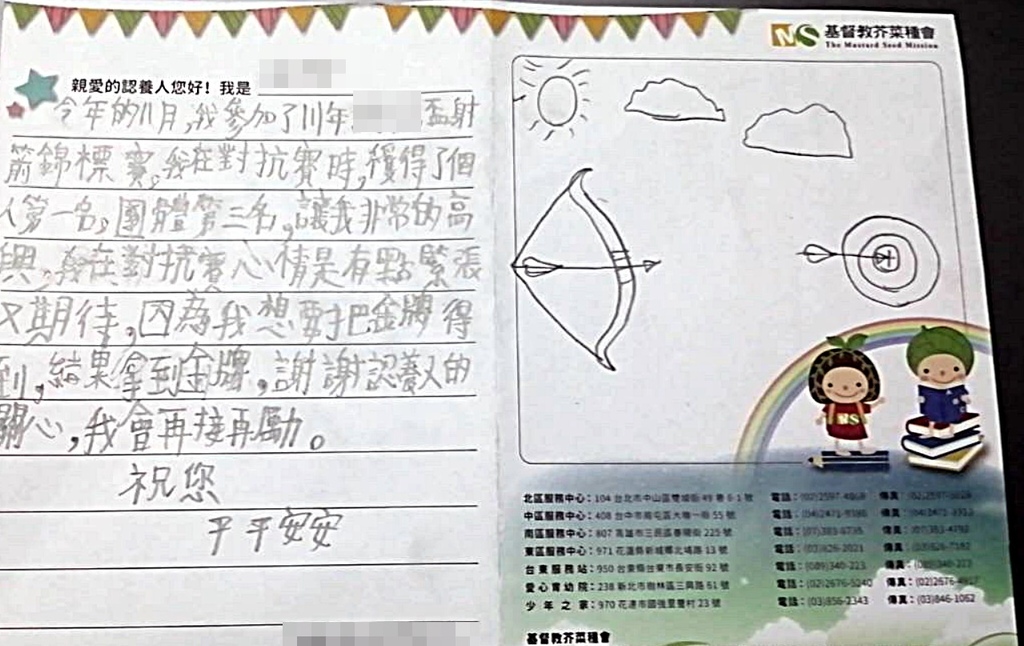 親愛的認養人您好！我是
今年的11月,我參加了111年 盃射
箭錦標賽,我在對抗賽時,獲得了個
人第一名,團體第三名,讓我非常的高
興,我在對抗賽心情是有點緊張
又期待,因為我想要把金牌得
到,結果拿到金牌,謝謝認養人的
關心,我會再接再勵。
祝您
平平安安
NS 基督教芥菜種會
The Mustard Seed Mission
NS
北區服務中心：104 台北市中山區雙城街 49 巷 6-1 號 電話：(02)2597-4868 傳真：
中區服務中心：408 台中市南屯區大墩一街 55 號 電話：(04)2471-9380 傳真：
南區服務中心：807 高雄市三民區春陽街 225 號 電話： 傳真：
東區服務中心：971 花蓮縣新城鄉北埔路 13 號 電話：(03)826-2021 傳真：(03)826-7182
台東服務站：950 台東縣台東市長安街 92 號 電話：(089)340-223 傳真：
愛心育幼院：238 新北市樹林區三興路 61 號 電話：(02)2676-5240 傳真：
少年之家：970 花蓮市國強里豐村 23 號 電話：(03)856-2343 傳真：(03)846-1062
基督教芥菜種會